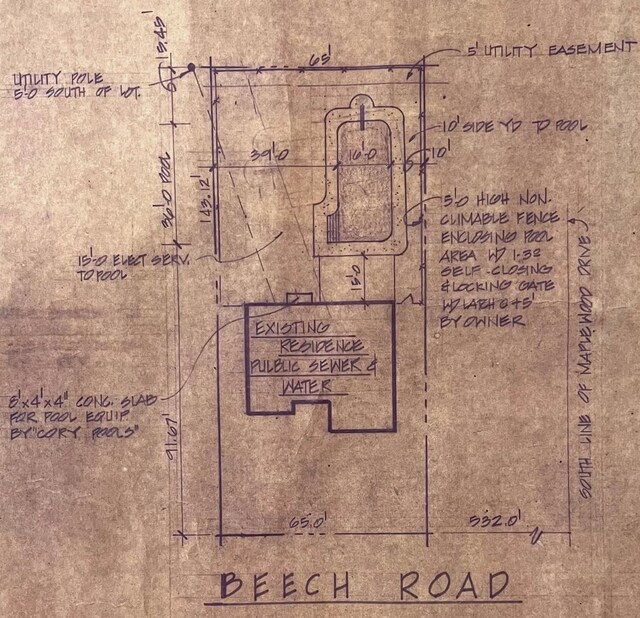 15.45'
65'
5' UTILITY EASEMENT
UTILITY POLE
5'-0 SOUTH OF LOT.
10' SIDE YD TO POOL
39'-0
16'-0
10'
36'-0 POOL
143.12'
5'-0 HIGH NON-
CLIMABLE FENCE
ENCLOSING POOL
AREA W/
SELF-CLOSING
& LOCKING GATE
BY OWNER
15'-0 ELECT SERV.
TO POOL
15'-0
EXISTING
RESIDENCE
PULBLIC SEWER &
WATER
8'x4'x4" CONC. SLAB
FOR POOL EQUIP
BY "CORY POOLS"
91.67'
SOUTH LINE OF MAPLEWOOD DRIVE
65.0'
532.0'
BEECH ROAD